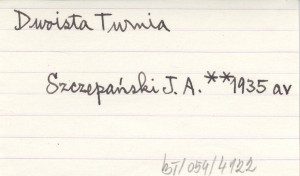 Dwoista Turnia
Szczepański J. A. **1935 av
bT/059/4122